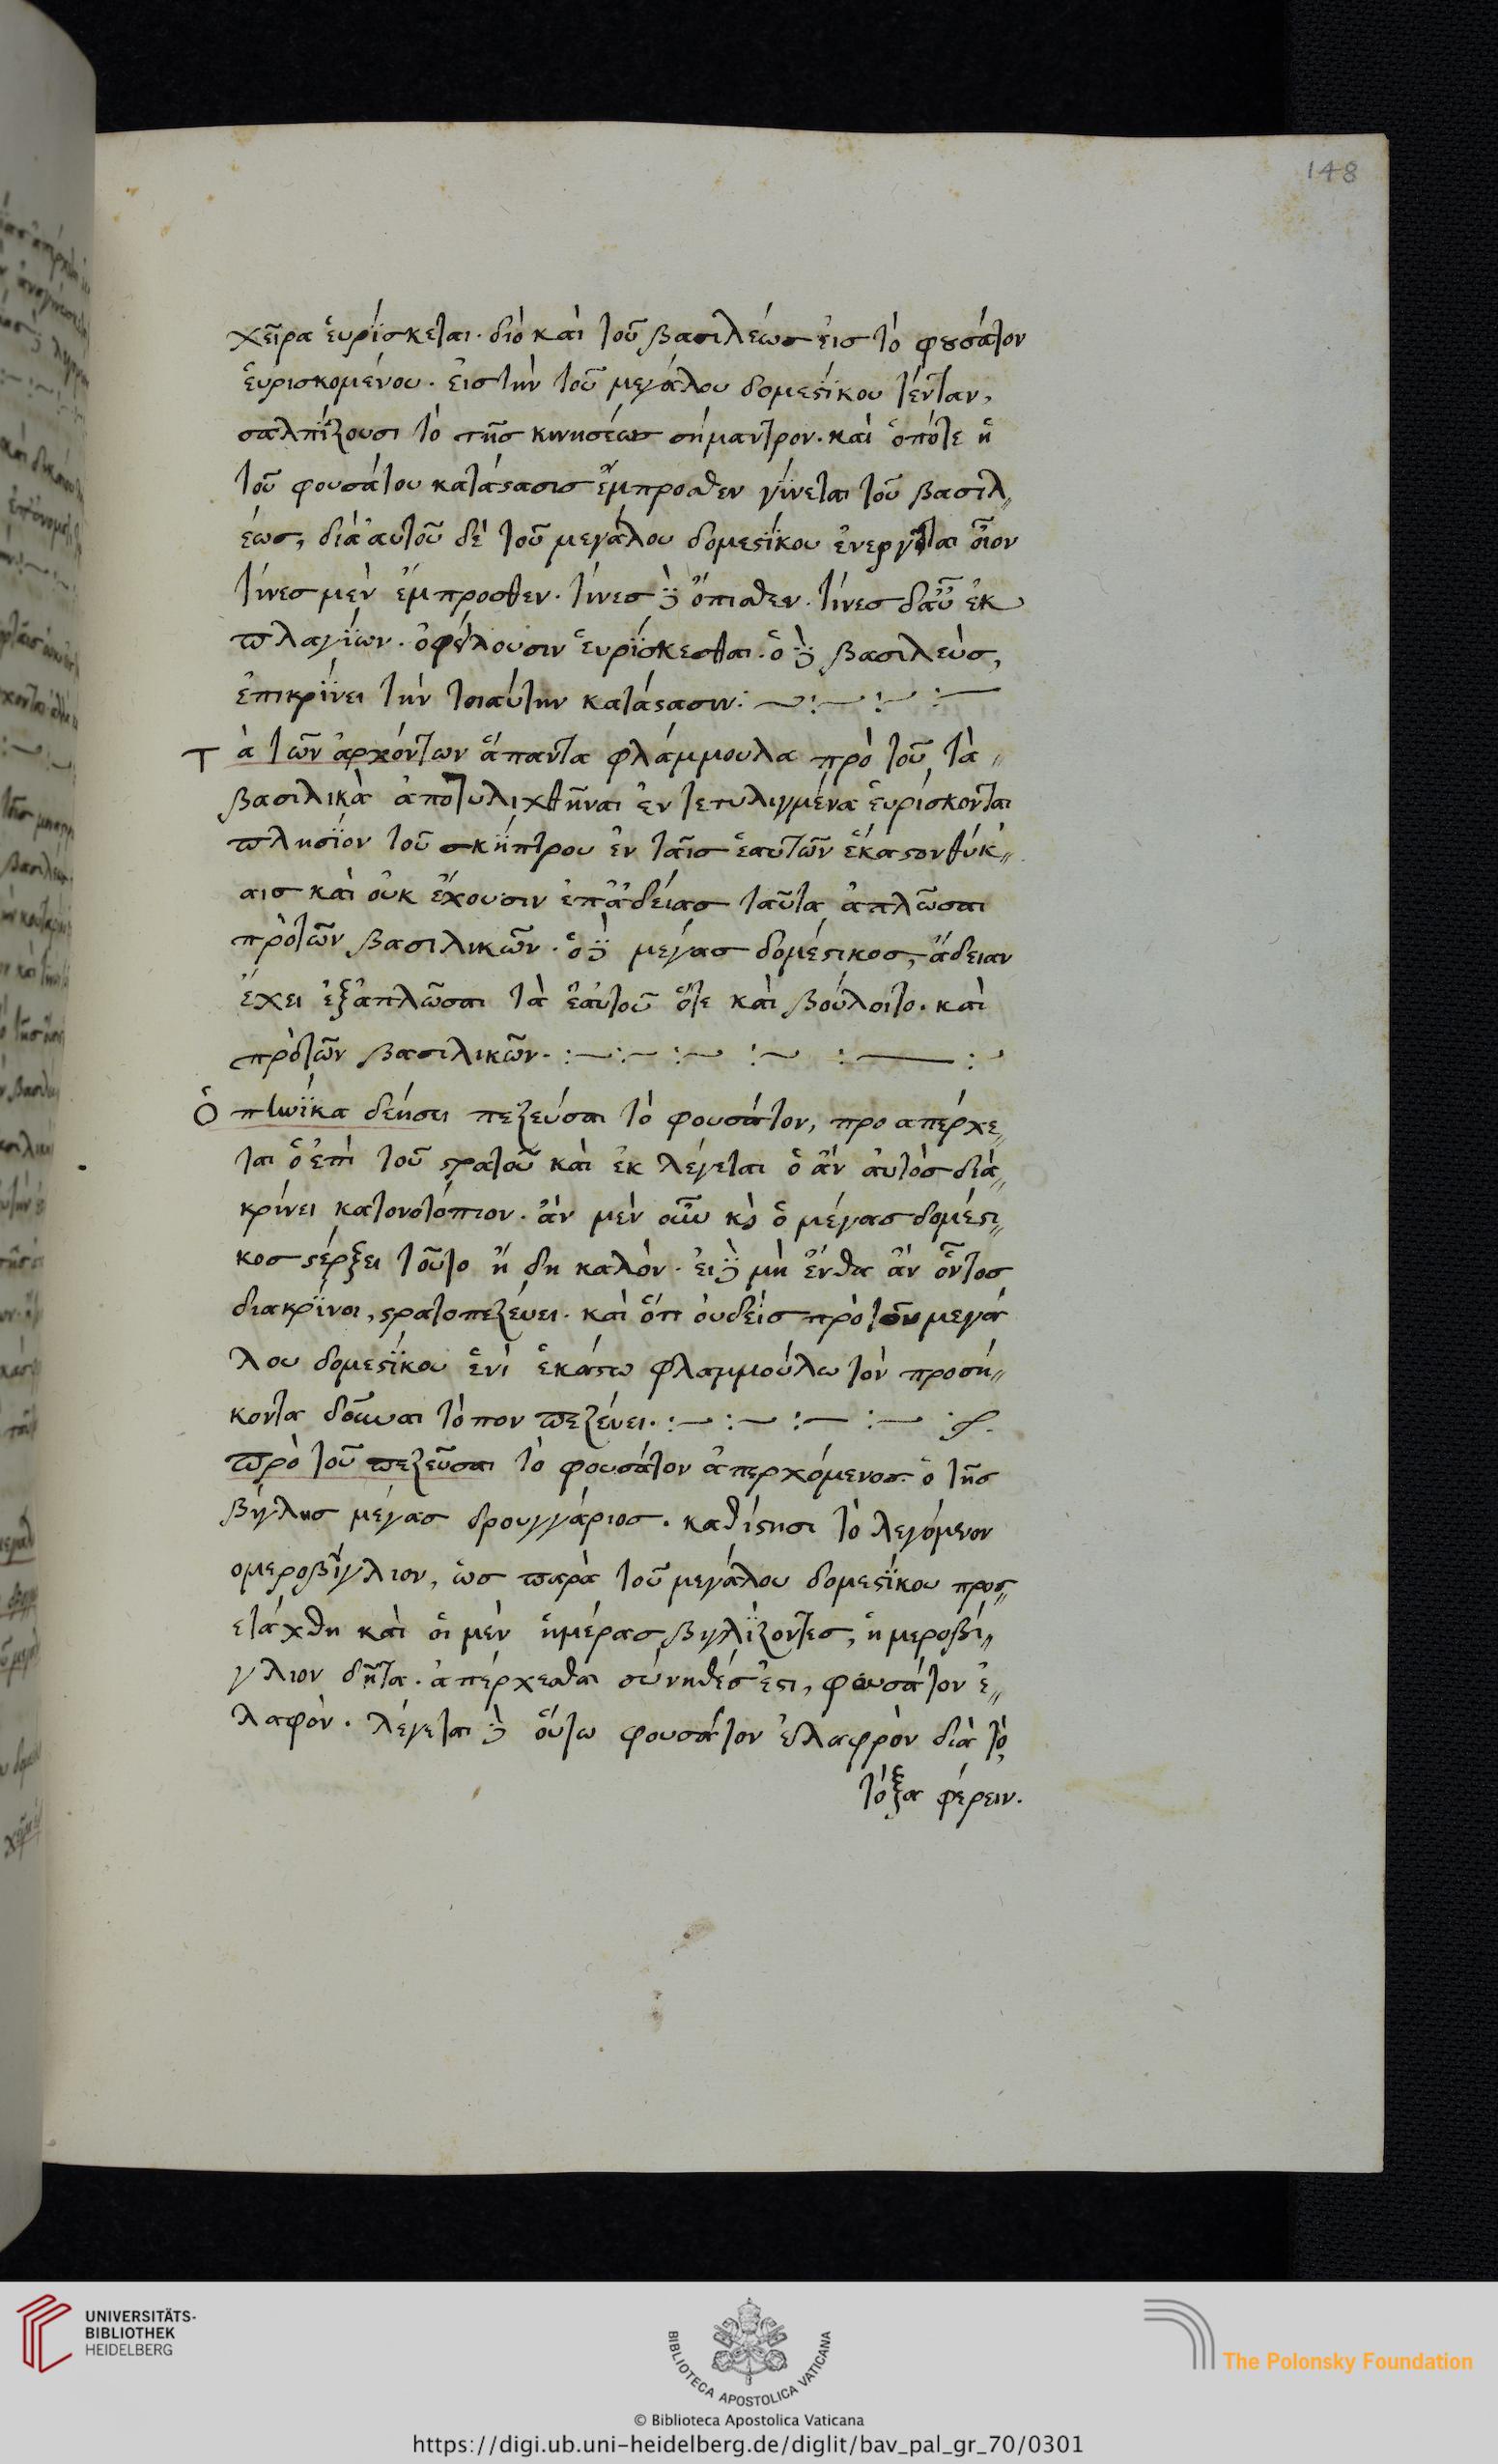 148
χεῖρα ἑυρίσκεται· διὸ καὶ τοῦ βασιλέως εἰς τὸ φουσάτον
ἑυρισκομένου. ἐις τὴν τοῦ μεγάλου δομεστίκου τένταν,
σαλπίζουσι τὸ τῆς κινησέως σήμαντρον. καὶ ὁπότε ἡ
τοῦ φουσάτου κατάστασις ἔμπροσθεν γίνεται τοῦ βασιλ〃
έως, διὰ ἀυτοῦ δὲ τοῦ μεγάλου δομεστίκου ἐνεργεῖται οἷον
τίνες μὲν ἔμπροσθεν. τίνες δὲ ὄπισθεν. τίνες δ'αὖ ἐκ
πλαγίων. ὀφείλουσιν ἑυρίσκεσθαι. ὁ δὲ βασιλεὺς,
ἐπικρίνει τὴν τοιαύτην κατάστασιν: ~:~ :~ :—
Τὰ τῶν ἀρχόντων ἅπαντα φλάμμουλα πρὸ τοῦ τὰ〃
βασιλικὰ ἀποτυλιχθῆναι ἐν τετυλιγμένα ἑυρίσκονται
πλησίον τοῦ σκήπτρου ἐν ταῖς ἑαυτῶν ἕκαστον θύκ〃
αις καὶ οὐκ ἔχουσιν ἐπ' ἀδείας ταῦτα ἁπλῶσαι
πρὸ τῶν βασιλικῶν. ὁ δὲ μέγας δομέστικος, ἄδειαν
ἔχει ἐξαπλῶσαι τὰ ἑαυτοῦ ὅτε καὶ βούλοιτο. καὶ
πρὸ τῶν βασιλικῶν. :—:~ :~ :~ :— :~
Ὁπηνίκα δεήσει πεζεύσαι τὸ φουσάτον, προαπέρχε〃
ται ὁ ἐπὶ τοῦ στρατοῦ καὶ ἐκλέγεται ὃ ἂν ἀυτὸς διὰ〃
κρίνει κατονοτόπιον. ἂν μὲν οὖν κὶ ὁ μέγας δομέστι〃
κος στέρξει τοῦτο ἤδη καλὸν. εἰ δὲ μὴ ἔνθα ἂν οὗτος
διακρίνοι, στρατοπεζέυει. καὶ ὅτι ὀυδεὶς πρὸ τοῦ μεγά
λου δομεστίκου ἑνὶ ἑκάστω φλαμμούλω τὸν προσή〃
κοντα δοῦναι τόπον πεζέυει. :~ :~ :— :~ :
πρὸ τοῦ πεζεῦσαι τὸ φουσάτον ἀπερχόμενος ὁ τῆς
βίγλης μέγας δρουγγάριος. καθίστησι τὸ λεγόμενον
ομεροβίγλιον, ὡς παρὰ τοῦ μεγάλου δομεστίκου προς〃
ετάχθη καὶ οἱ μὲν ἡμέρας βιγλίζοντες, ἡμεροβί〃
γλιον δῆτα. ἀπέρχεσθαι σύνηθές ἐστι, φουσάτον ἐ〃
λαφὸν. λέγεται δὲ οὕτω φουσάτον ἐλαφρὸν διὰ τὸ
τόξα φέρειν.
UNIVERSITÄTS-
BIBLIOTHEK
HEIDELBERG
BIBLIOTECA APOSTOLICA VATICANA
The Polonsky Foundation
© Biblioteca Apostolica Vaticana
https://digi.ub.uni-heidelberg.de/diglit/bav_pal_gr_70/0301